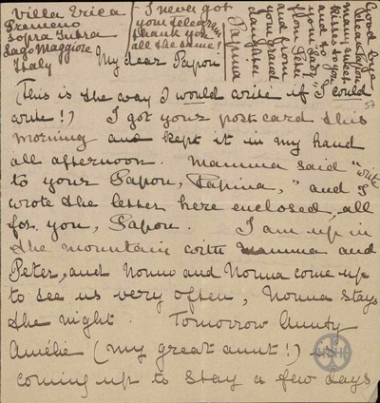 Villa Erica
Premeno
Sopra Intra
Lago Maggiore
Italy
I never got
your telegram
thank you
all the same!
Good bye
dear Papou
many sweet
kisses to you
from "Lady"
from Peter
and from
your grand
daughter
Papina
57
My dear Papou
(This is the way I would write if I could
write!) I got your postcard this
morning and kept it in my hand
all afternoon. Mamma said "write
to your Papou, Papina," and I
wrote the letter here enclosed, all
for you, Papou. I am up in
the mountain with Mamma and
Peter, and Nonno and Nonna come up
to see us very often, Nonna stays
the night. Tomorrow Aunty
Amélie (my great aunt!) is
coming up to stay a few days